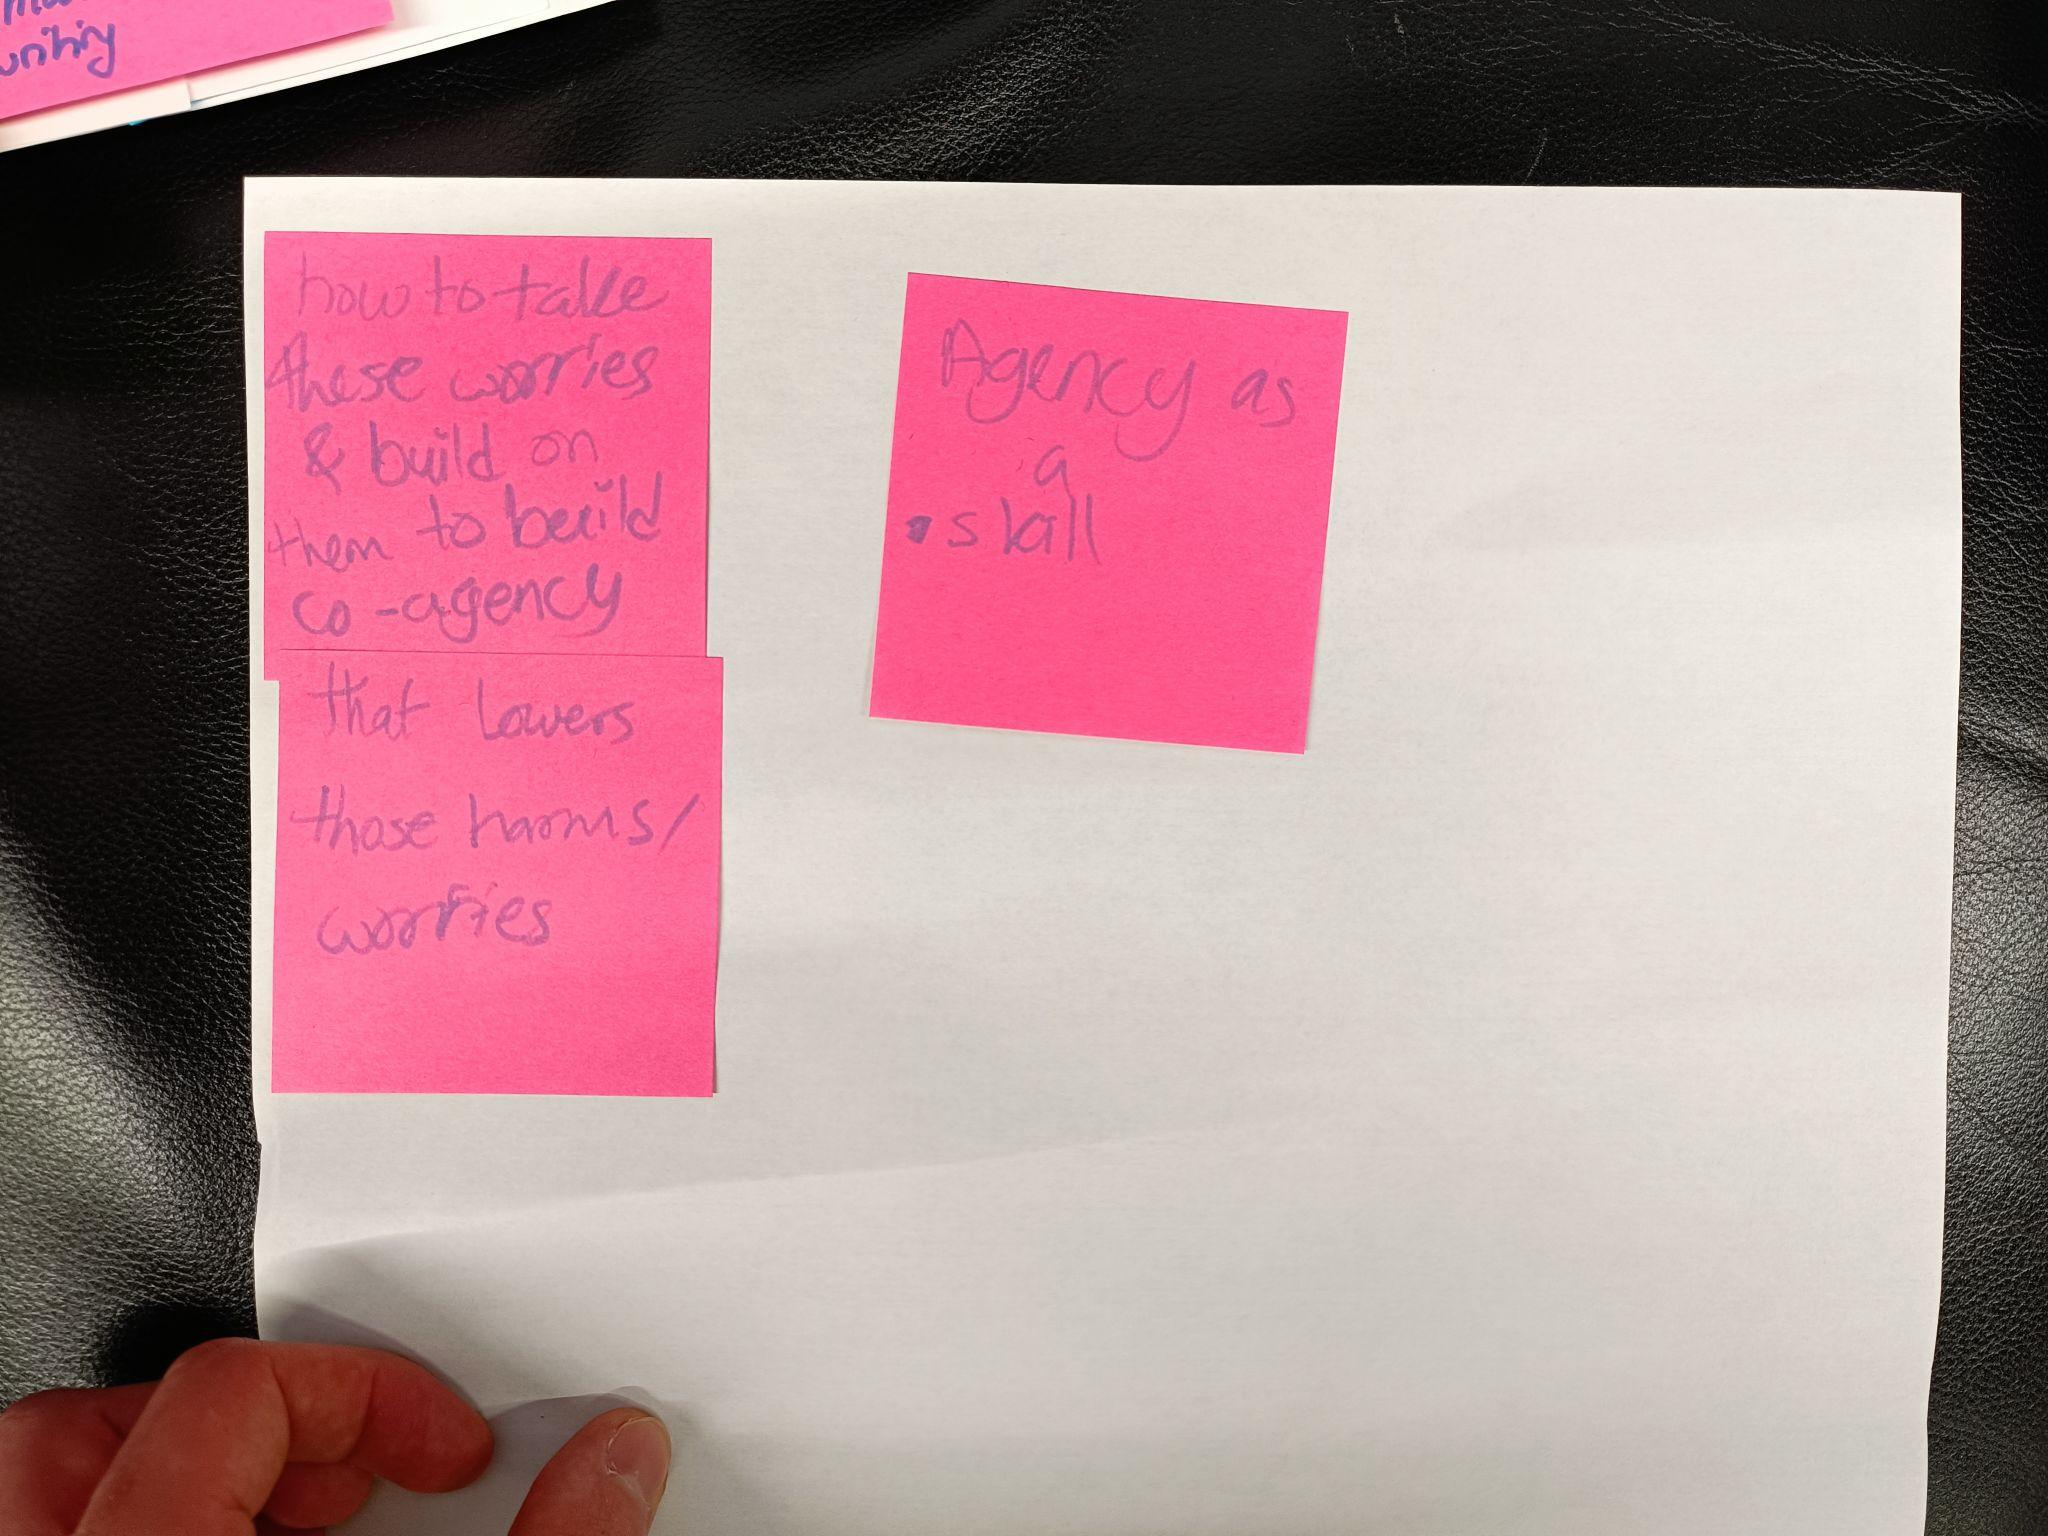 writing
how to take
these worries
& build on
them to build
co-agency
that lowers
those harms/
worries
Agency as
a
skill